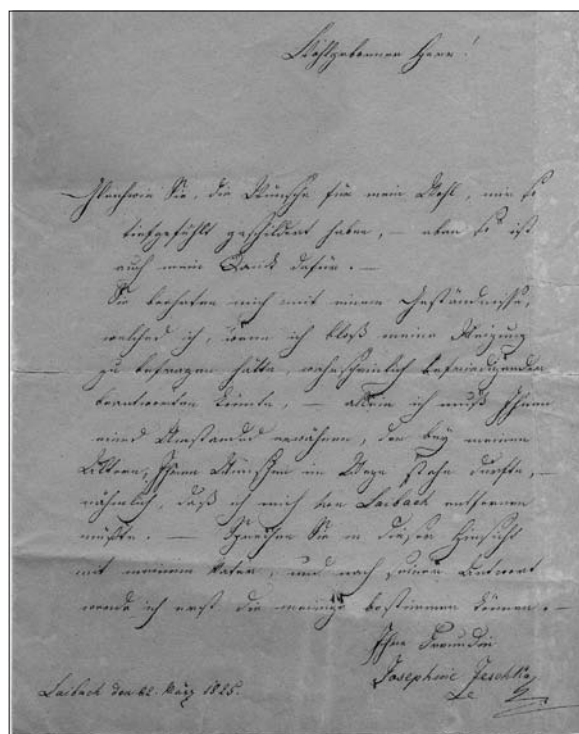 Wohlgeborner Herr!
Gleichwie Sie, die Wünsche für mein Wohl, mir so
tiefgefühlt geschildert haben, – eben so ist
auch mein Dank dafür. –
Sie beehrten mich mit einem Geständnisse,
welches ich, wenn ich bloß meine Neigung
zu befragen hätte, wahrscheinlich befriedigender
beantworten könnte, – allein ich muß Ihnen
eines Umstandes erwähnen, der bey meinen
Ältern, Ihren Wünschen im Wege stehn dürfte, –
nähmlich, daß ich mich von Laibach entfernen
müßte. – Sprechen Sie in dieser Hinsicht
mit meinem Vater, und nach seiner Antwort
werde ich erst die meinige bestimmen können. –
Ihre Freundin
Josephine Jeschka
Laibach den 22. März 1825.